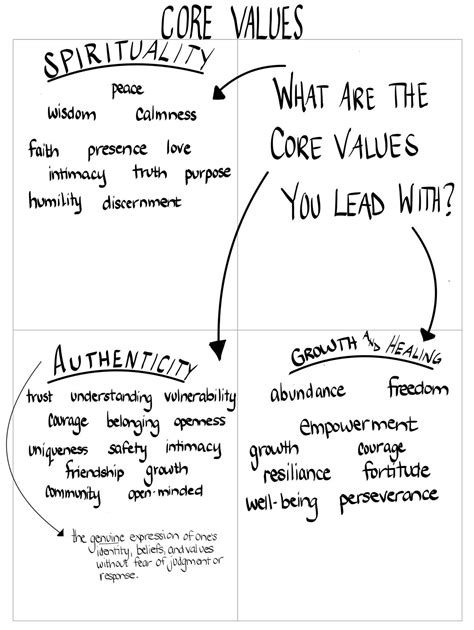 CORE VALUES
SPIRITUALITY
peace
wisdom calmness
faith presence love
intimacy truth purpose
humility discernment
WHAT ARE THE
CORE VALUES
YOU LEAD WITH?
AUTHENTICITY
trust understanding vulnerability
courage belonging openness
uniqueness safety intimacy
friendship growth
community open-minded
the genuine expression of one's
identity, beliefs, and values
without fear of judgment or
response.
GROWTH AND HEALING
abundance freedom
empowerment
growth courage
resiliance fortitude
well-being perseverance